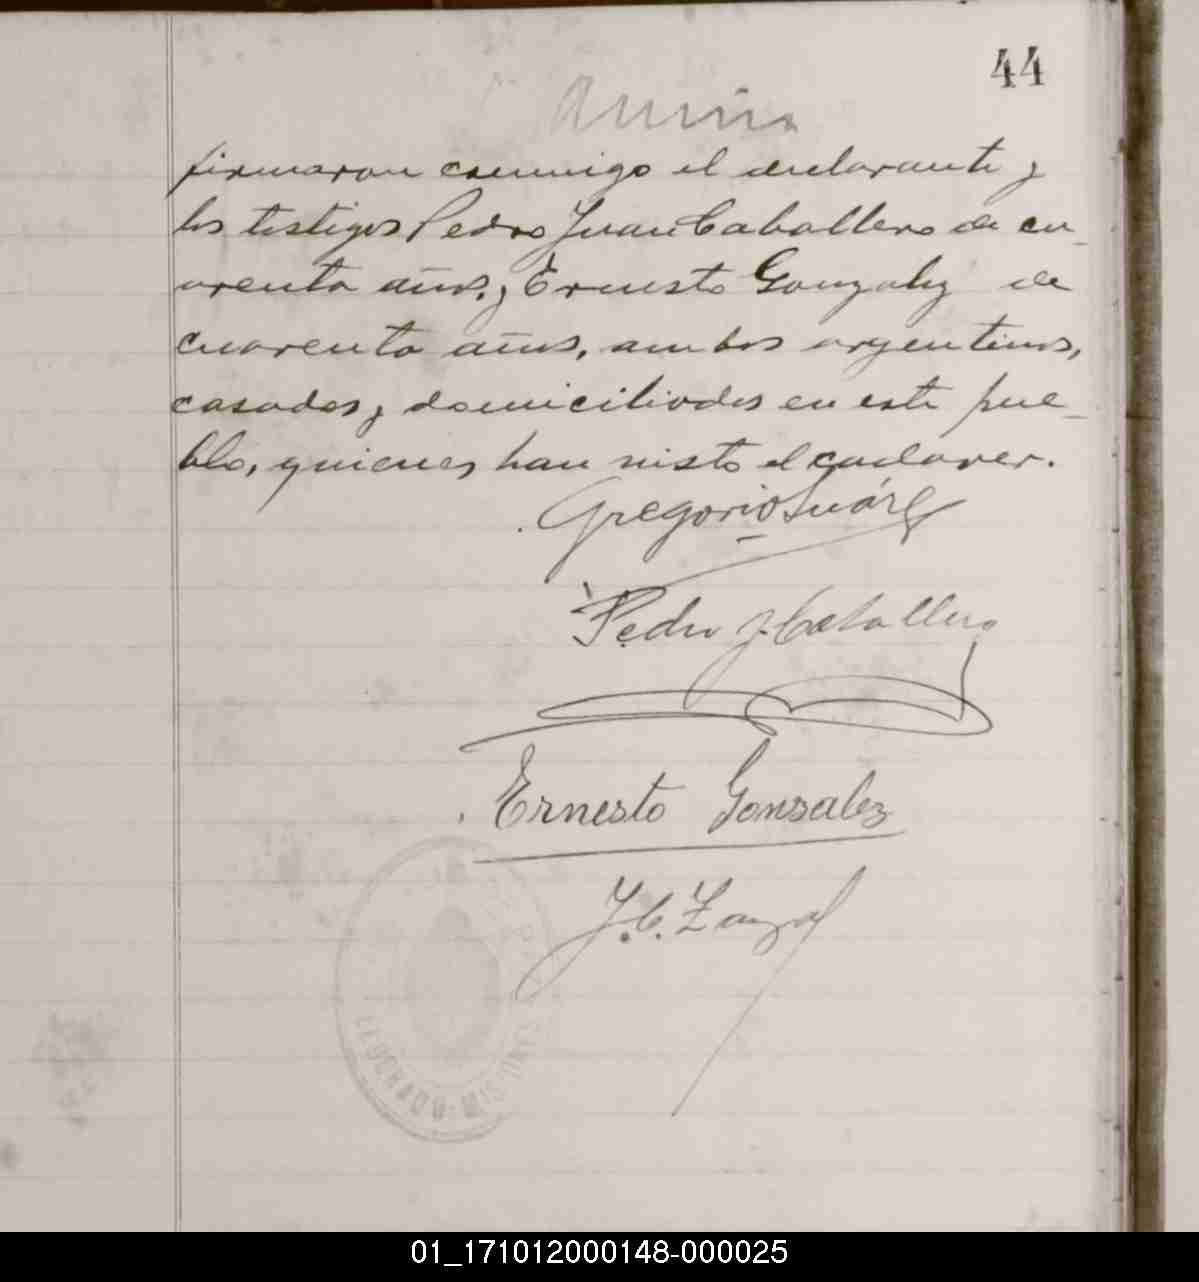 44
firmaron conmigo el declarante y
los testigos Pedro Juan Caballero de cu_
arenta años, y Ernesto Gonzalez de
cuarenta años, ambos argentinos,
casados y domiciliados en este pue_
blo, quienes han visto el cadaver.
Gregorio Suárez
Pedro J. Caballero
Ernesto Gonzalez
J. C.
MISIONES
01_171012000148-000025